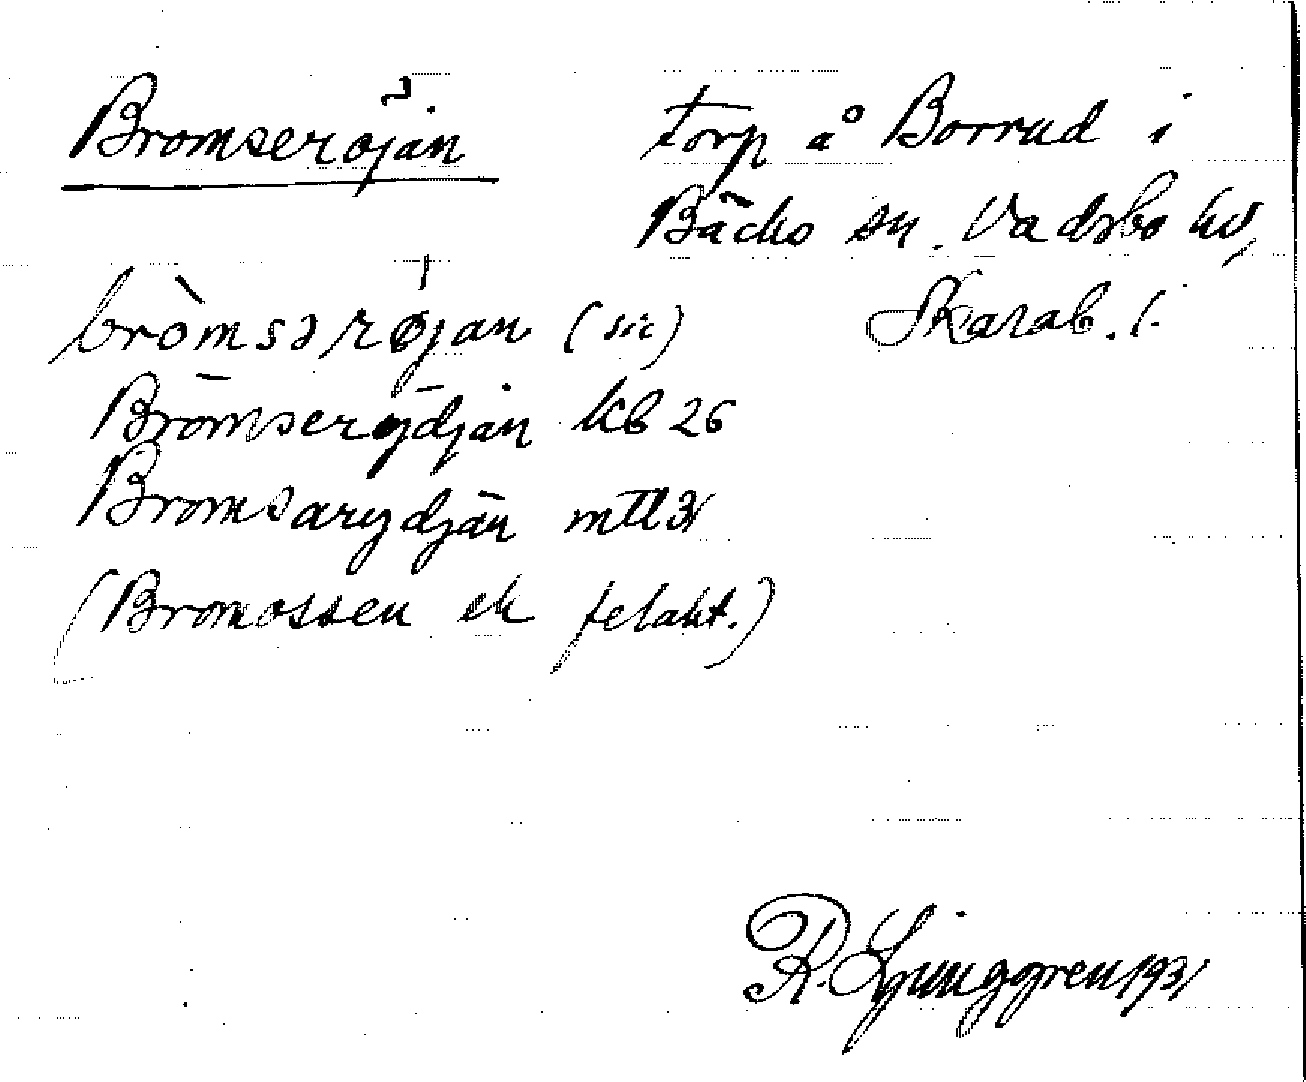 Bromseröjän torp å Borrud i
Bäcks sn. Vadsbo hd,
bròmsərøjan (sic) Skarab. l.
Bromserydjän kb 26
Bromsarydjän mtl 31
(Bromossen ek felakt.)
R. Ljunggren 1931